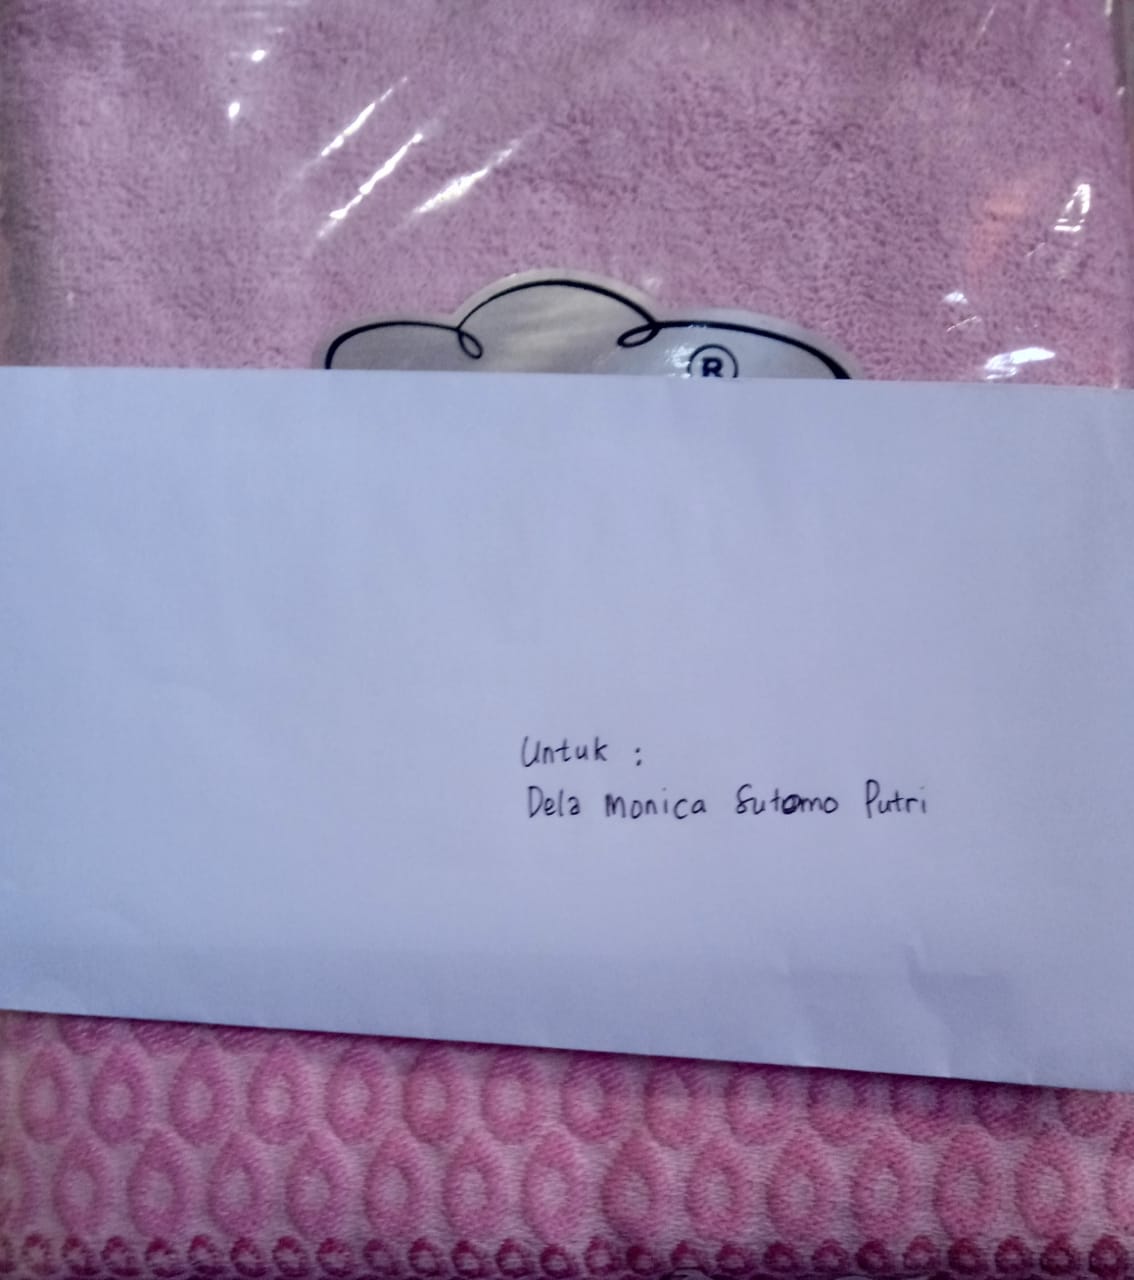 ®
Untuk :
Dela Monica Sutomo Putri